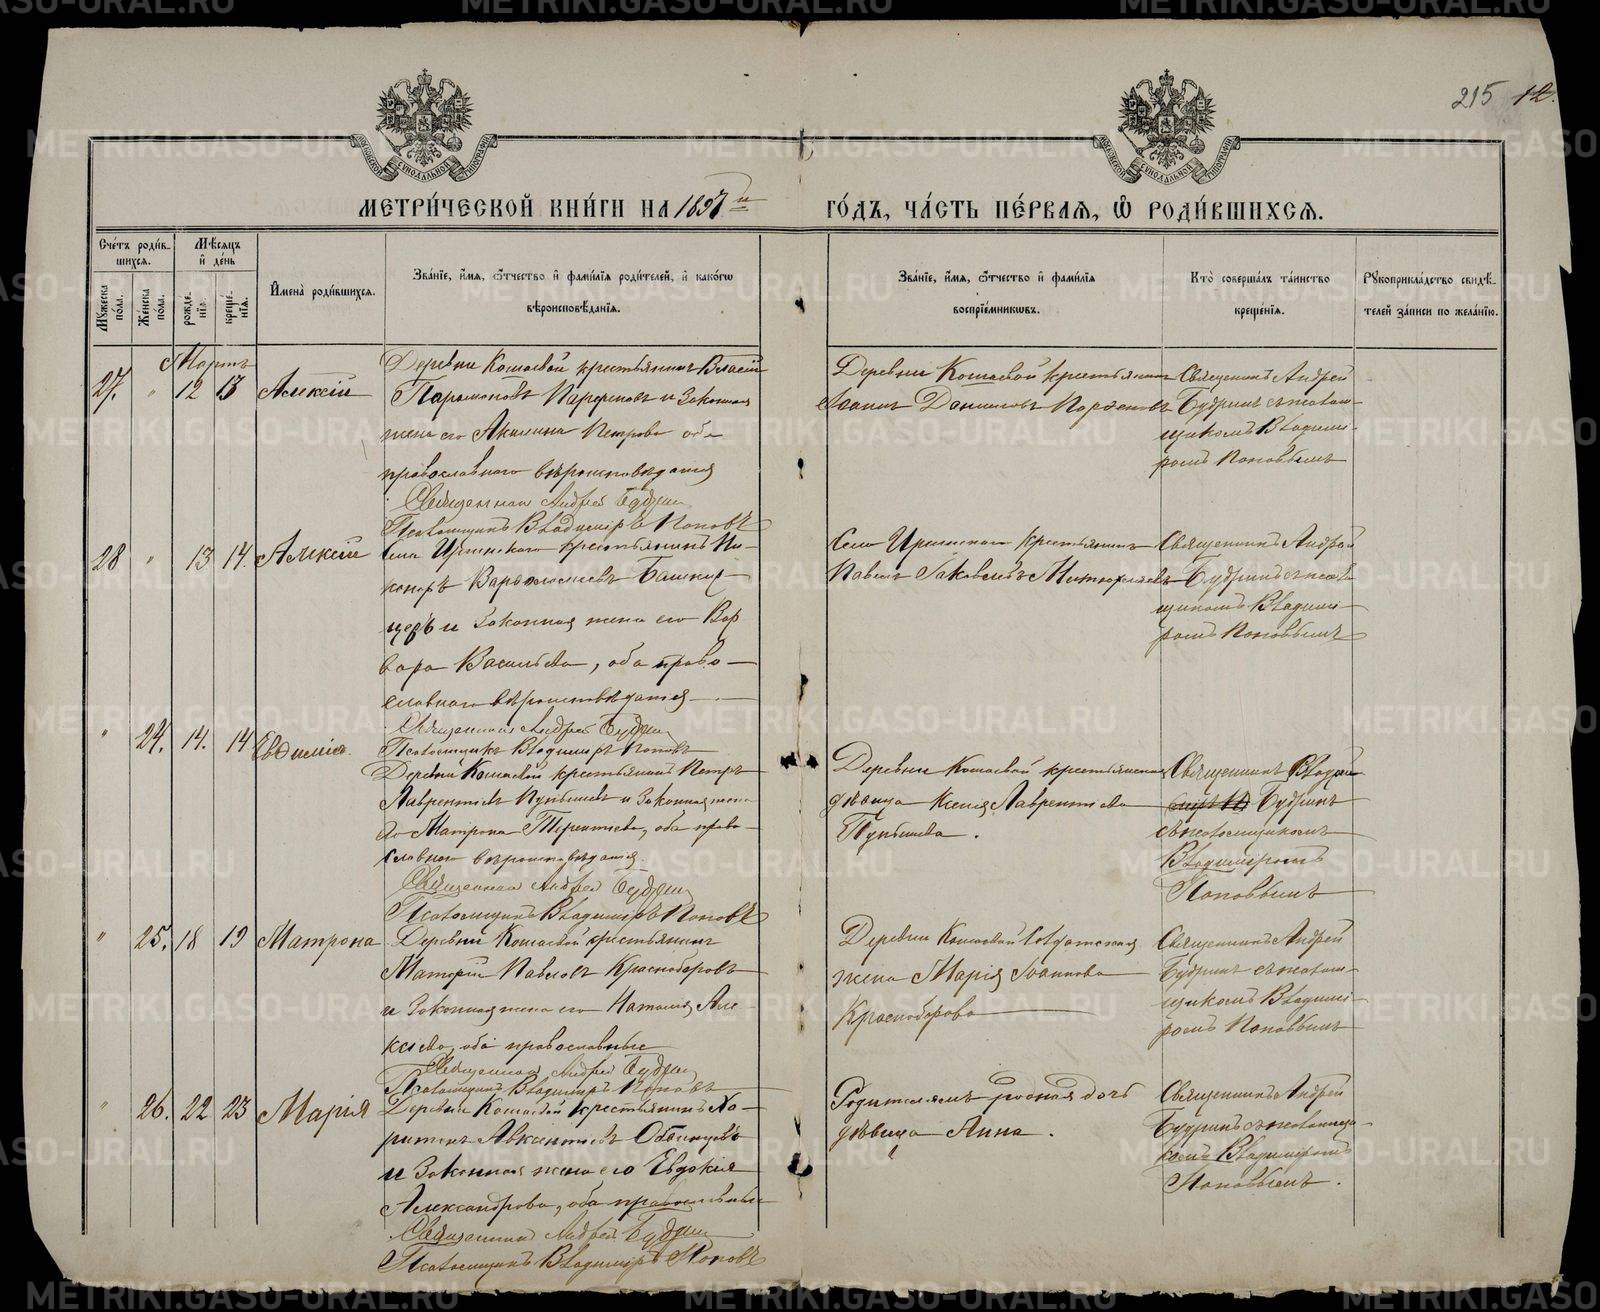 215 12.
МЕТРИ́ЧЕСКОЙ КНИ́ГИ НА 1897й ГО́ДЪ, ЧА́СТЬ ПЕ́РВАЯ, Ѽ РОДИ́ВШИХСЯ.
Сче́тъ роди́вшихся.
Мꙋжеска по́ла.
Же́нска по́ла.
Мѣ́сяцъ и҆ де́нь
рожде́нїя.
креще́нїя.
И҆мена̀ роди́вшихся.
Зва́нїе, и҆́мя, ѻ҆́тчество и҆ фами́лїя роди́телей, и҆ како́гѡ вѣроисповѣ́данїя.
Зва́нїе, и҆́мя, ѻ҆́тчество и҆ фами́лїя воспрїе́мникѡвъ.
Кто̀ соверша́лъ та́инство креще́нїя.
Рꙋкоприкла́дство свидѣ́телей за́писи по жела́нїю.
Мартъ
27. " 12 13 Алексій
Деревни Кошаевой крестьянинъ Власій
и Законная
жена его Акилина Петрова оба
православного вѣроисповѣданія
Священникъ Андрей Будринъ
Псаломщикъ Владиміръ Поповъ
Деревни Кошаевой крестьянинъ
Іоаннъ Даниловъ
Священникъ Андрей
Будринъ съ псалом-
щикомъ Владими-
ромъ Поповымъ
28 " 13 14. Алексій
Села Иргинскаго крестьянинъ Ни-
каноръ Варѳоломеевъ
и Законная жена его Вар
вара Васильева, оба право-
славного вѣроисповѣданія
Священникъ Андрей Будринъ
Псаломщикъ Владиміръ Поповъ
Села Иргинскаго крестьянинъ
Павелъ Іаковлевъ
Священникъ Андрей
Будринъ съ псалом
щикомъ Владими-
ромъ Поповымъ
" 24. 14. 14 Евѳимія
Деревни Кошаевой крестьянинъ Петръ
Лаврентьевъ и Законная жена
его Матрона Терентьева, оба право-
славного вѣроисповѣданія
Священникъ Андрей Будринъ
Псаломщикъ Владиміръ Поповъ
Деревни Кошаевой крестьянская
дѣвица Ксенія Лаврентьева
Священникъ
Будринъ
съ псаломщикомъ
Владиміромъ
Поповымъ
" 25. 18 19 Матрона
Деревни Кошаевой крестьянинъ
Павловъ Краснобаровъ
и Законная жена его Наталія Але-
ксѣева, оба православные
Священникъ Андрей Будринъ
Псаломщикъ Владиміръ Поповъ
Деревни Кошаевой Солдатская
жена Марія Іоаннова
Краснобарова
Священникъ Андрей
Будринъ съ псалом-
щикомъ Владими-
ромъ Поповымъ
" 26. 22 23 Марія
Деревни Кошаевой крестьянинъ Ха-
ритонъ Авксентьевъ
и Законная жена его Евдокія
Александрова, оба православные
Священникъ Андрей Будринъ
Псаломщикъ Владиміръ Поповъ
Родителямъ родная дочь
дѣвица Анна.
Священникъ Андрей
Будринъ съ псаломщи-
комъ Владиміромъ
Поповымъ.
METRIKI.GASO-URAL.RU